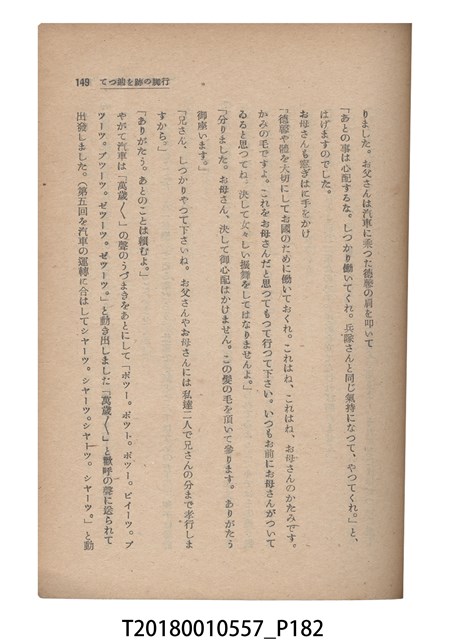 149 てつ追を跡の馴行
りました。お父さんは汽車に乘つた德馨の肩を叩いて
「あとの事は心配するな。しつかり働いてくれ。兵隊さんと同じ氣持になつて、やつてくれ。」と、
はげますのでした。
お母さんも窓ぎはに手をかけ
「德馨や體を大切にしてお國のために働いておくれ。これはね、これはね、お母さんのかたみです。
かみの毛ですよ。これをお母さんだと思つてもつて行つて下さい。いつもお前にお母さんがついて
ゐると思つてね、決して女々しい振舞をしてはなりませんよ。」
「分りました。お母さん、決して御心配はかけません。この髮の毛を頂いて參ります。ありがたう
御座います。」
「兄さん、しつかりやつて下さいね。お父さんやお母さんには私達二人で兄さんの分まで孝行しま
すから。」
「ありがたう。あとのことは賴むよ。」
やがて汽車は「萬歲〱」の聲のうづまきをあとにして「ポツー。ポツー。ポツー。ピイーツ。プ
ツーツ。プツーツ。ゼツーツ。ゼツーツ。」と動き出しました「萬歲〱」と歡呼の聲に送られて
出發しました。(第五回を汽車の運轉に合はしてシヤーツ。シヤーツ。シヤーツ。シヤーツ。」と動
T20180010557_P182